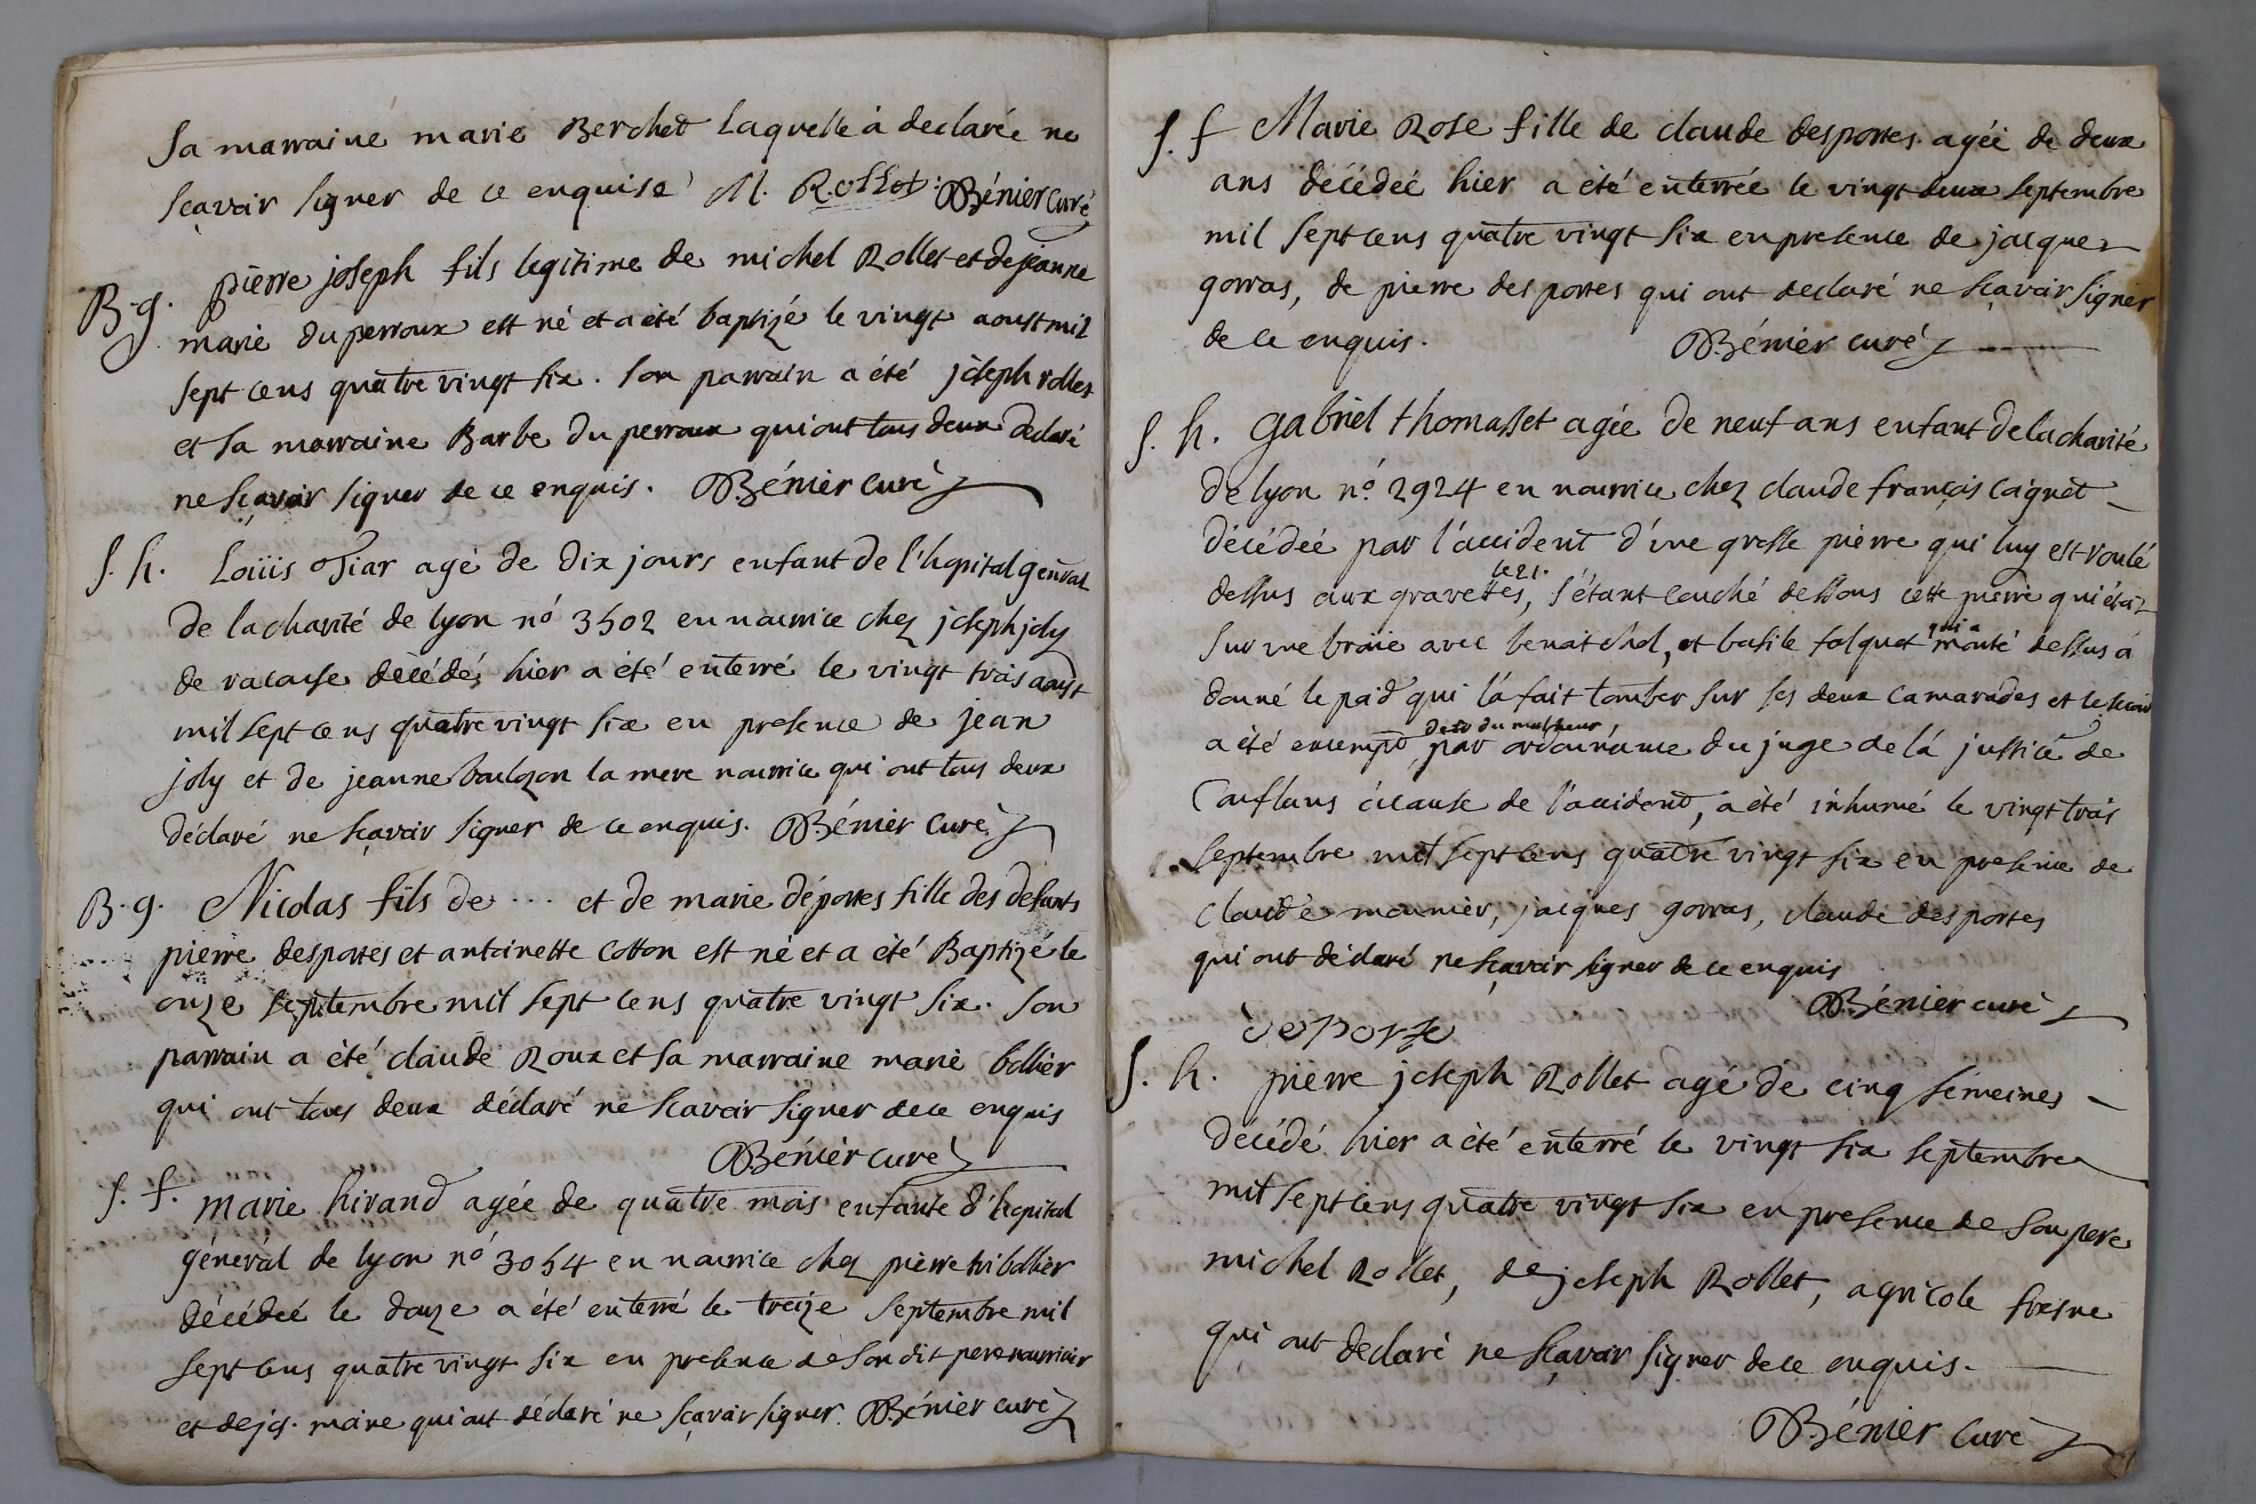 Sa marraine marie Berchet Laquelle à declarée ne
sçavoir signer de ce enquise M. Rollet: Bénier curé
B.g. pierre joseph fils legitime de michel Rollet et de jeanne
marie du perroux est né et a été baptizé le vingt aoust mil
sept cens quatre vingt six. son parrain a été joseph rollet
et sa marraine Barbe du perroux qui ont tous deux declaré
ne sçavoir signer de ce enquis. Bénier curé
S. h. Loüis Tiar agé de dix jours enfant de l'hopital genral
de la charité de lyon nó 3502 en nourrice chez joseph joly
de décédé hier a été enterré le vingt trois aoust
mil sept cens quatre vingt six en presence de jean
joly et de jeanne la mere nourrice qui ont tous deux
déclaré ne sçavoir signer de ce enquis. Bénier Curé
B.g. Nicolas fils de ... et de marie déportes fille des defunts
pierre desportes et antoinette Cotton est né et a été Baptizé le
onze septembre mil sept cens quatre vingt six. son
parrain a été claude Roux et sa marraine marie bollier
qui ont tous deux déclaré ne scavoir signer de ce enquis
Bénier curé
S. f. Marie hivand agée de quatre mois enfante d'hopital
général de lyon nó 3054 en nourrice chez pierre bollier
décédeé le douze a été enterré le treize Septembre mil
sept cens quatre vingt six en presence de son dit pere nourricier
et de jos. moine qui ont déclaré ne sçavoir signer. Bénier curé
S. f Marie Rose fille de claude desportes. agéé de deux
ans décédeé hier a été enterrée le vingt deux septembre
mil sept cens quatre vingt six en presence de jacques
gorras, de pierre desportes qui ont declaré ne sçavoir signer
de ce enquis. Bénier curé
S. h. Gabriel thomasset agée de neuf ans enfant de la charité
de lyon nó. 2924 en nourrice chez claude françois Cagnet
décédeé par l'accident d'une grosse pierre qui luy est roulé
le 21.
dessus aux gravettes, s'étant couché dessous cette pierre qui étoit
sur une avec benoit et basile folquet qui a monté dessus a
donné le poid qui l'a fait tomber sur ses deux camarades et le second
a été exempt dud du malheur, par ordounance du juge de la justice de
Conflans à cause de l'accident, a été inhumé le vingt trois
septembre mil sept cens quatre vingt six en presence de
Claude mounier, jacques gorras, claude desportes
qui ont déclaré ne sçavoir signer de ce enquis
Bénier curé
deporte
S. h. pierre joseph Rollet agé de cinq semeines
décédé hier a été enterré le vingt six septembre
mil sept cens quatre vingt six en presence de son pere
michel Rollet, de joseph Rollet, agricole
qui ont declaré ne sçavoir signer de ce enquis.
Bénier Curé